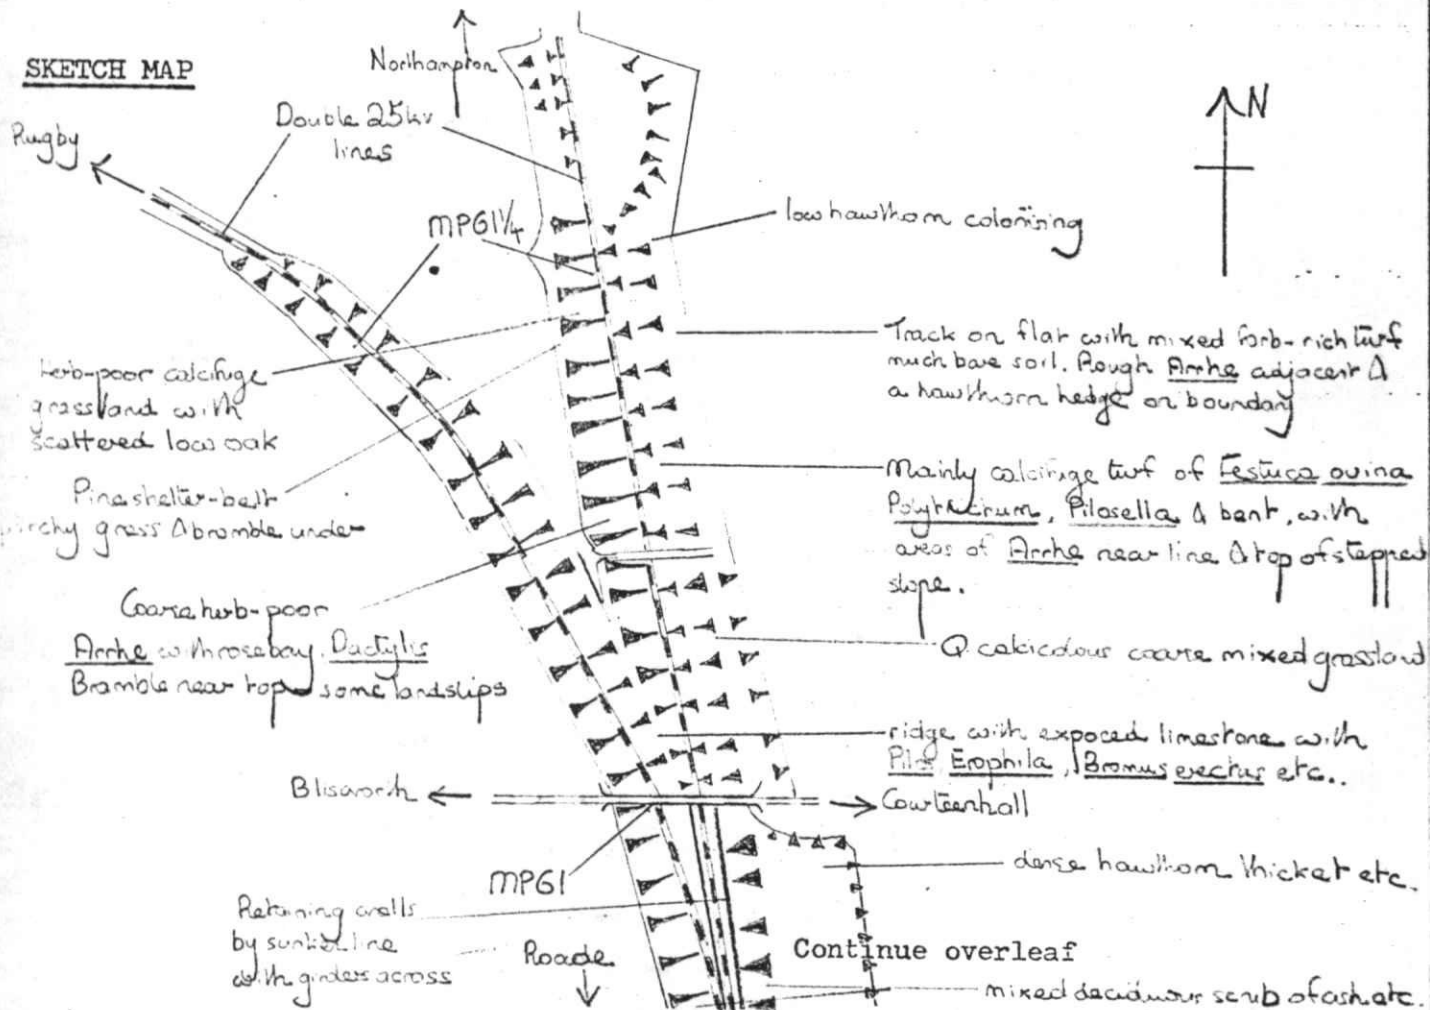 SKETCH MAP
Northampton
N
Rugby
Double 25kv
lines
MP61¼
low hawthorn colonising
Track on flat with mixed forb-rich turf
much bare soil. Rough Arrhe adjacent &
a hawthorn hedge on boundary
Herb-poor calcifuge
grassland with
scattered low oak
Pine shelter-belt
grass & bramble under
Mainly calcifuge turf of Festuca ovina
Polytrichum, Pilosella & bent, with
areas of Arrhe near line & top of stepped
slope.
Coarse herb-poor
Arrhe with rosebay, Dactylis
Bramble near top some landslips
Q calcicolous coarse mixed grassland
ridge with exposed limestone with
Pilos, Erophila, Bromus erectus etc..
Blisworth
Courteenhall
MP61
dense hawthorn thicket etc.
Retaining walls
by sunken line
with girders across
Roade
Continue overleaf
mixed deciduous scrub of ash etc.